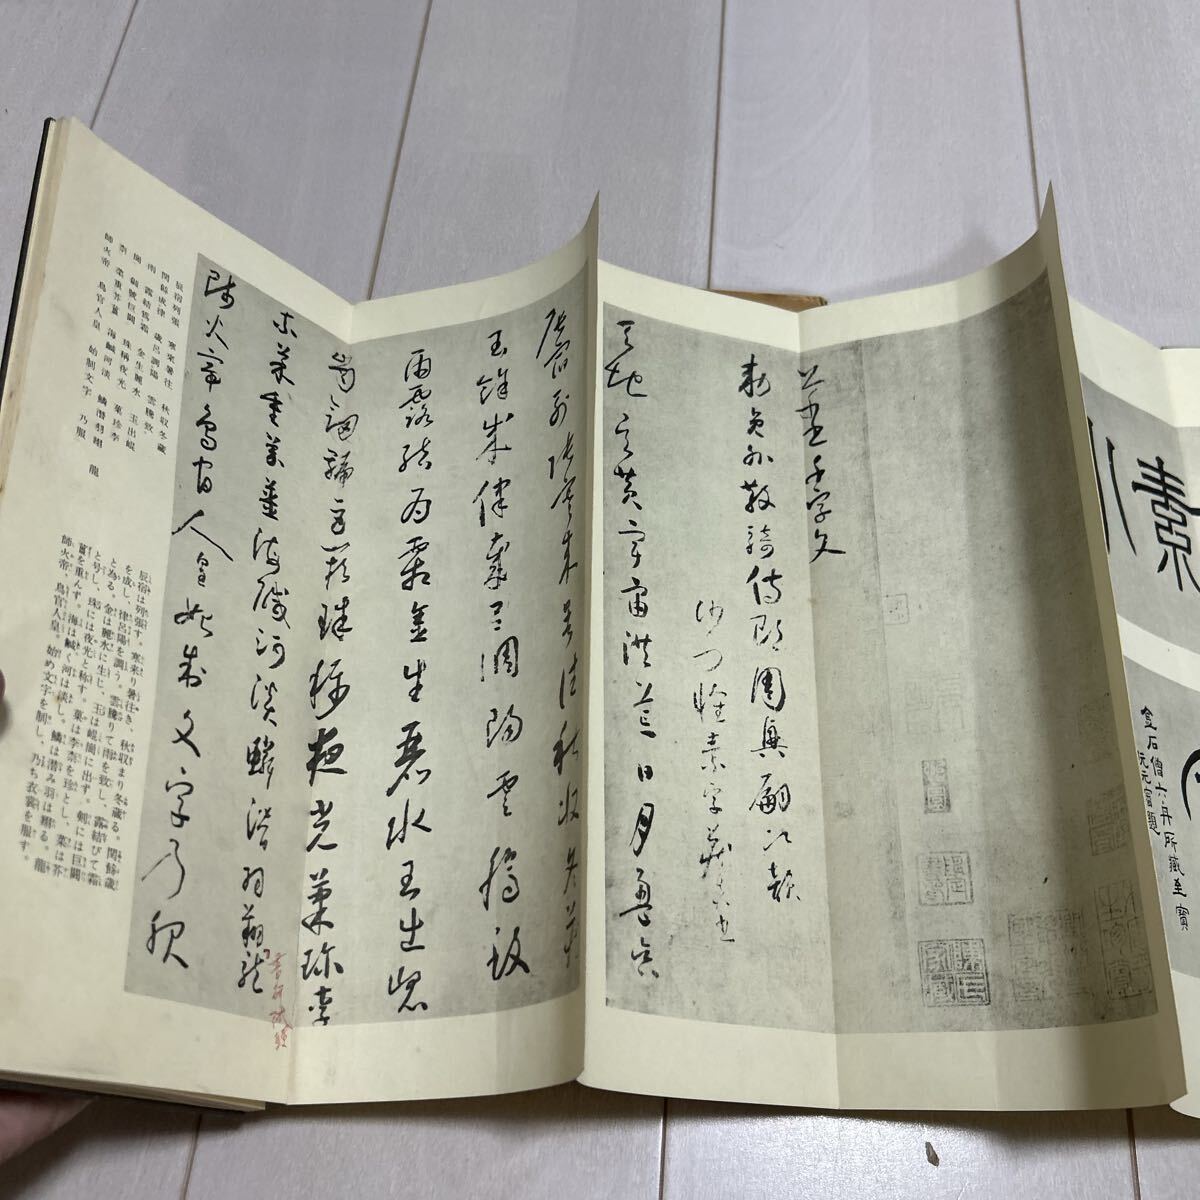 素
金石僧六舟所藏至寶
阮元審題
草書千字文
敕員外散騎侍郎周興嗣次韻
沙門懷素字藏真
天地玄黃宇宙洪荒日月盈昃
辰宿列張寒來暑往秋收冬藏
閏餘成律歲呂調陽雲騰致
雨露結為霜金生麗水玉出崐
崗劍號巨闕珠稱夜光菓珍李
柰菜重芥薑海鹹河淡鱗潛羽翔龍
師火帝鳥官人皇始制文字乃服
辰宿列張 寒來暑往 秋収冬蔵
閏餘成律 歲呂調陽 雲騰致
雨 露結爲霜 金生麗水 玉出崐
崗 劍號巨闕 珠稱夜光 菓珍李
柰 菜重芥薑 海鹹河淡 鱗潛羽翔 龍
師火帝 鳥官人皇 始制文字 乃服
辰宿は列張す。寒来り暑往き、秋収まり冬蔵る。閏餘歲
を成し、律呂陽を調う。雲騰りて雨を致し、露結びて霜
と為る。金は麗水に生じ、玉は崐崗に出ず。剣には巨闕
と号し、珠には夜光と称す。菓は李柰を珍とし、菜は芥
薑を重んず。海は鹹、河は淡し。鱗は潜み羽は翔る。龍
師火帝、鳥官人皇。始め文字を制し、乃ち衣裳を服す。